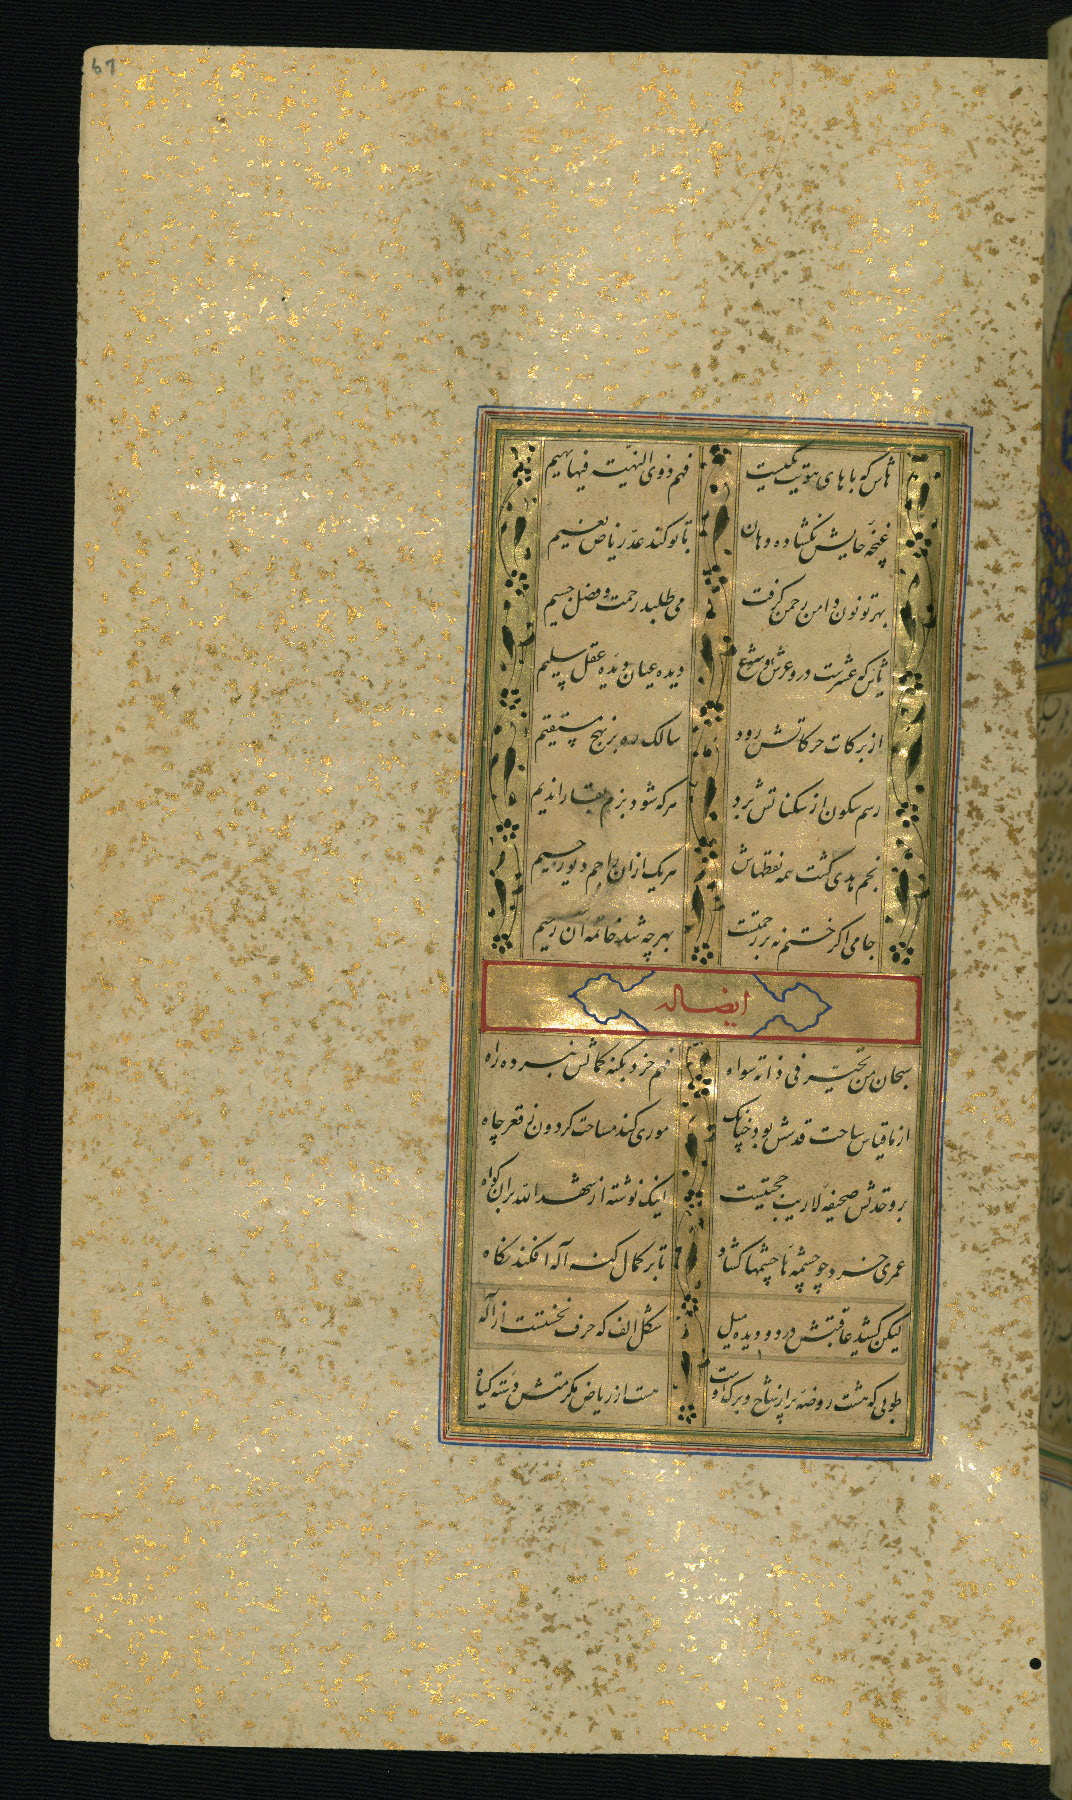 67
هاش که با های هویت یکیست فهم ذوی النهیة فیها یهیم
غنچهٔ حایش نگشاده دهان تا تو کند عد ریاض نعیم
بهر تو نون دامن رحمن گرفت می طلبد رحمت و فضل جسیم
یاش که عشرست درو عرش و سبع دیده عیان دیدهٔ عقل سلیم
از برکات حرکاتش رود سالک ره بر نهج مستقیم
رسم سکون از سکناتش برد هر که شود بزم بقا را ندیم
نجم هدی گشت همه نقطهاش هر یک ازان راجم دیو رجیم
جامی اگر ختم نه بر رحمتست بهر چه شد خاتمه آن رحیم
ایضا له
سبحان من تحیّر فی ذاته سواه فهم خرد بکنه کمالش نبرده راه
از ما قیاس ساحت قدسش بود چنانک موری کند مساحت گردون ز قعر چاه
بر وحدتش صحیفهٔ لاریب حجتیست اینک نوشته از شهد الله بران گواه
عمری خرد چو چشمه ها چشمها گشاد تا بر کمال کنه اله افکند نگاه
لیکن کشید عاقبتش در دو دیده میل شکل الف که حرف نخستست از اله
طوبی که هشت روضه پر از شاخ و برگ اوست هست از ریاض مکرمتش دسته گیاه